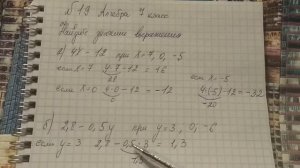 №19 Алгебра 7 класс
Найдите значение выражения
а) 4x - 12 при x = 7, 0, -5
если x = 7 4·7 - 12 = 16 если x = -5
28
если x = 0 4·0 - 12 = -12 4·(-5) - 12 = -32
0 -20
б) 2,8 - 0,5y при y = 3, 0, -6
если y = 3 2,8 - 0,5·3 = 1,3